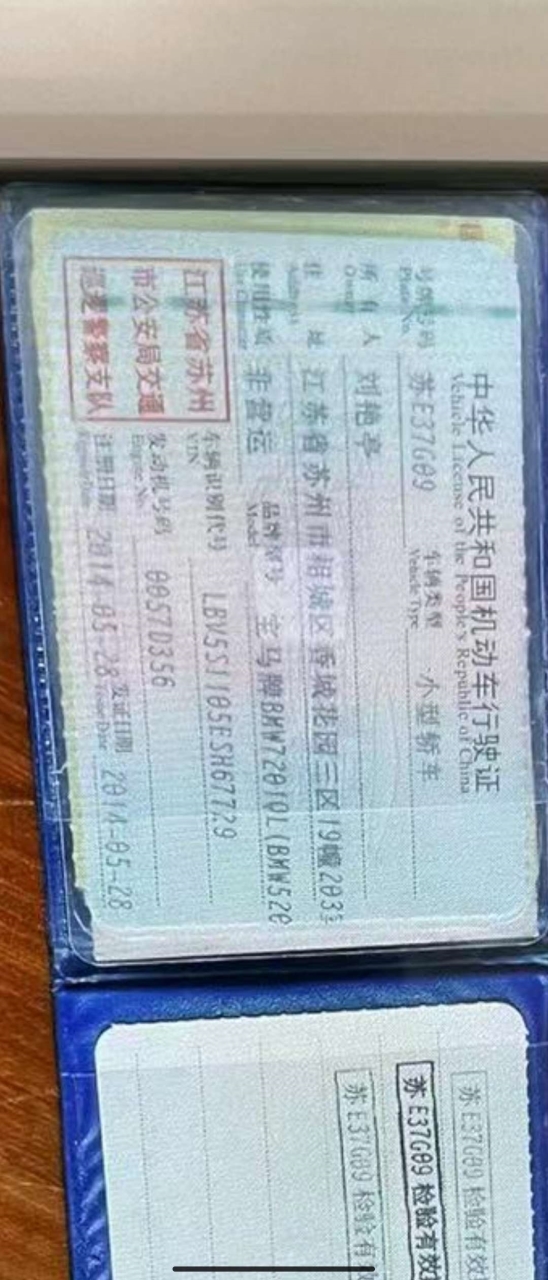 中华人民共和国机动车行驶证
Vehicle License of the People's Republic of China
号牌号码 苏E37G89 车辆类型 小型轿车
Plate No. Vehicle Type
所有人 刘艳亭
Owner
住址 江苏省苏州市相城区香城花园三区19幢203室
Address
使用性质 非营运 品牌型号 宝马牌BMW7201QL(BMW520
Use Character Model
江苏省苏州
市公安局交通
巡逻警察支队
车辆识别代号 LBV5S1105ESH67729
VIN
发动机号码 0057D356
Engine No.
注册日期 2014-05-28 发证日期 2014-05-28
Register Date Issue Date
苏E37G89 检验有效
苏E37G89 检验有效
苏E37G89 检验有效